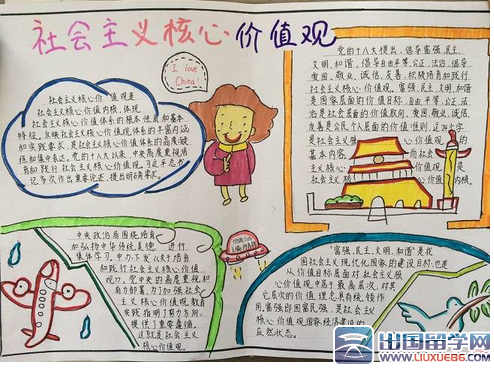 社会主义核心价值观
I love
China!
社会主义核心价值观是
社会主义核心价值体系的内核,体现
社会主义核心价值体系的根本性质和基本
特征,反映社会主义核心价值体系的丰富内涵
和实践要求,是社会主义核心价值体系的高度凝
练和集中表达。党的十八大以来,中央高度重视培
育和践行社会主义核心价值观。习近平总书
记多次作出重要论述、提出明确要求。
党的十八大提出,倡导富强、民主、
文明、和谐,倡导自由、平等、公正、法治,倡导
爱国、敬业、诚信、友善,积极培育和践行
社会主义核心价值观。富强、民主、文明、和谐
是国家层面的价值目标,自由、平等、公正、法
治是社会层面的价值取向,爱国、敬业、诚信、
友善是公民个人层面的价值准则,这24个字
是社会主义核心价值观的
基本内容,
中央政治局围绕培育
和弘扬中华传统美德 进行
集体学习。中办下发《关于培育
和践行社会主义核心价值
观》。党中央的高度重视和
有力部署,为了加强社会主
义核心价值观教育
实践指明了努力方向,
提供了重要遵循。
这就是社会主义
核心价值观。
“富强、民主、文明、和谐”是我
国社会主义现代化国家的建设目标,也是
从价值目标层面对社会主义核
心价值观中居于最高层次,对其
它层次的价值理念具有统领作
用。富强即国富民强,是社会主义
核心价值观国家经济建设的
应然状态。
出国留学网
www.liuxue86.com